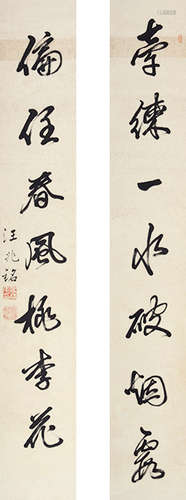 牽練一水破烟霞
偏任春風桃李花
汪兆銘